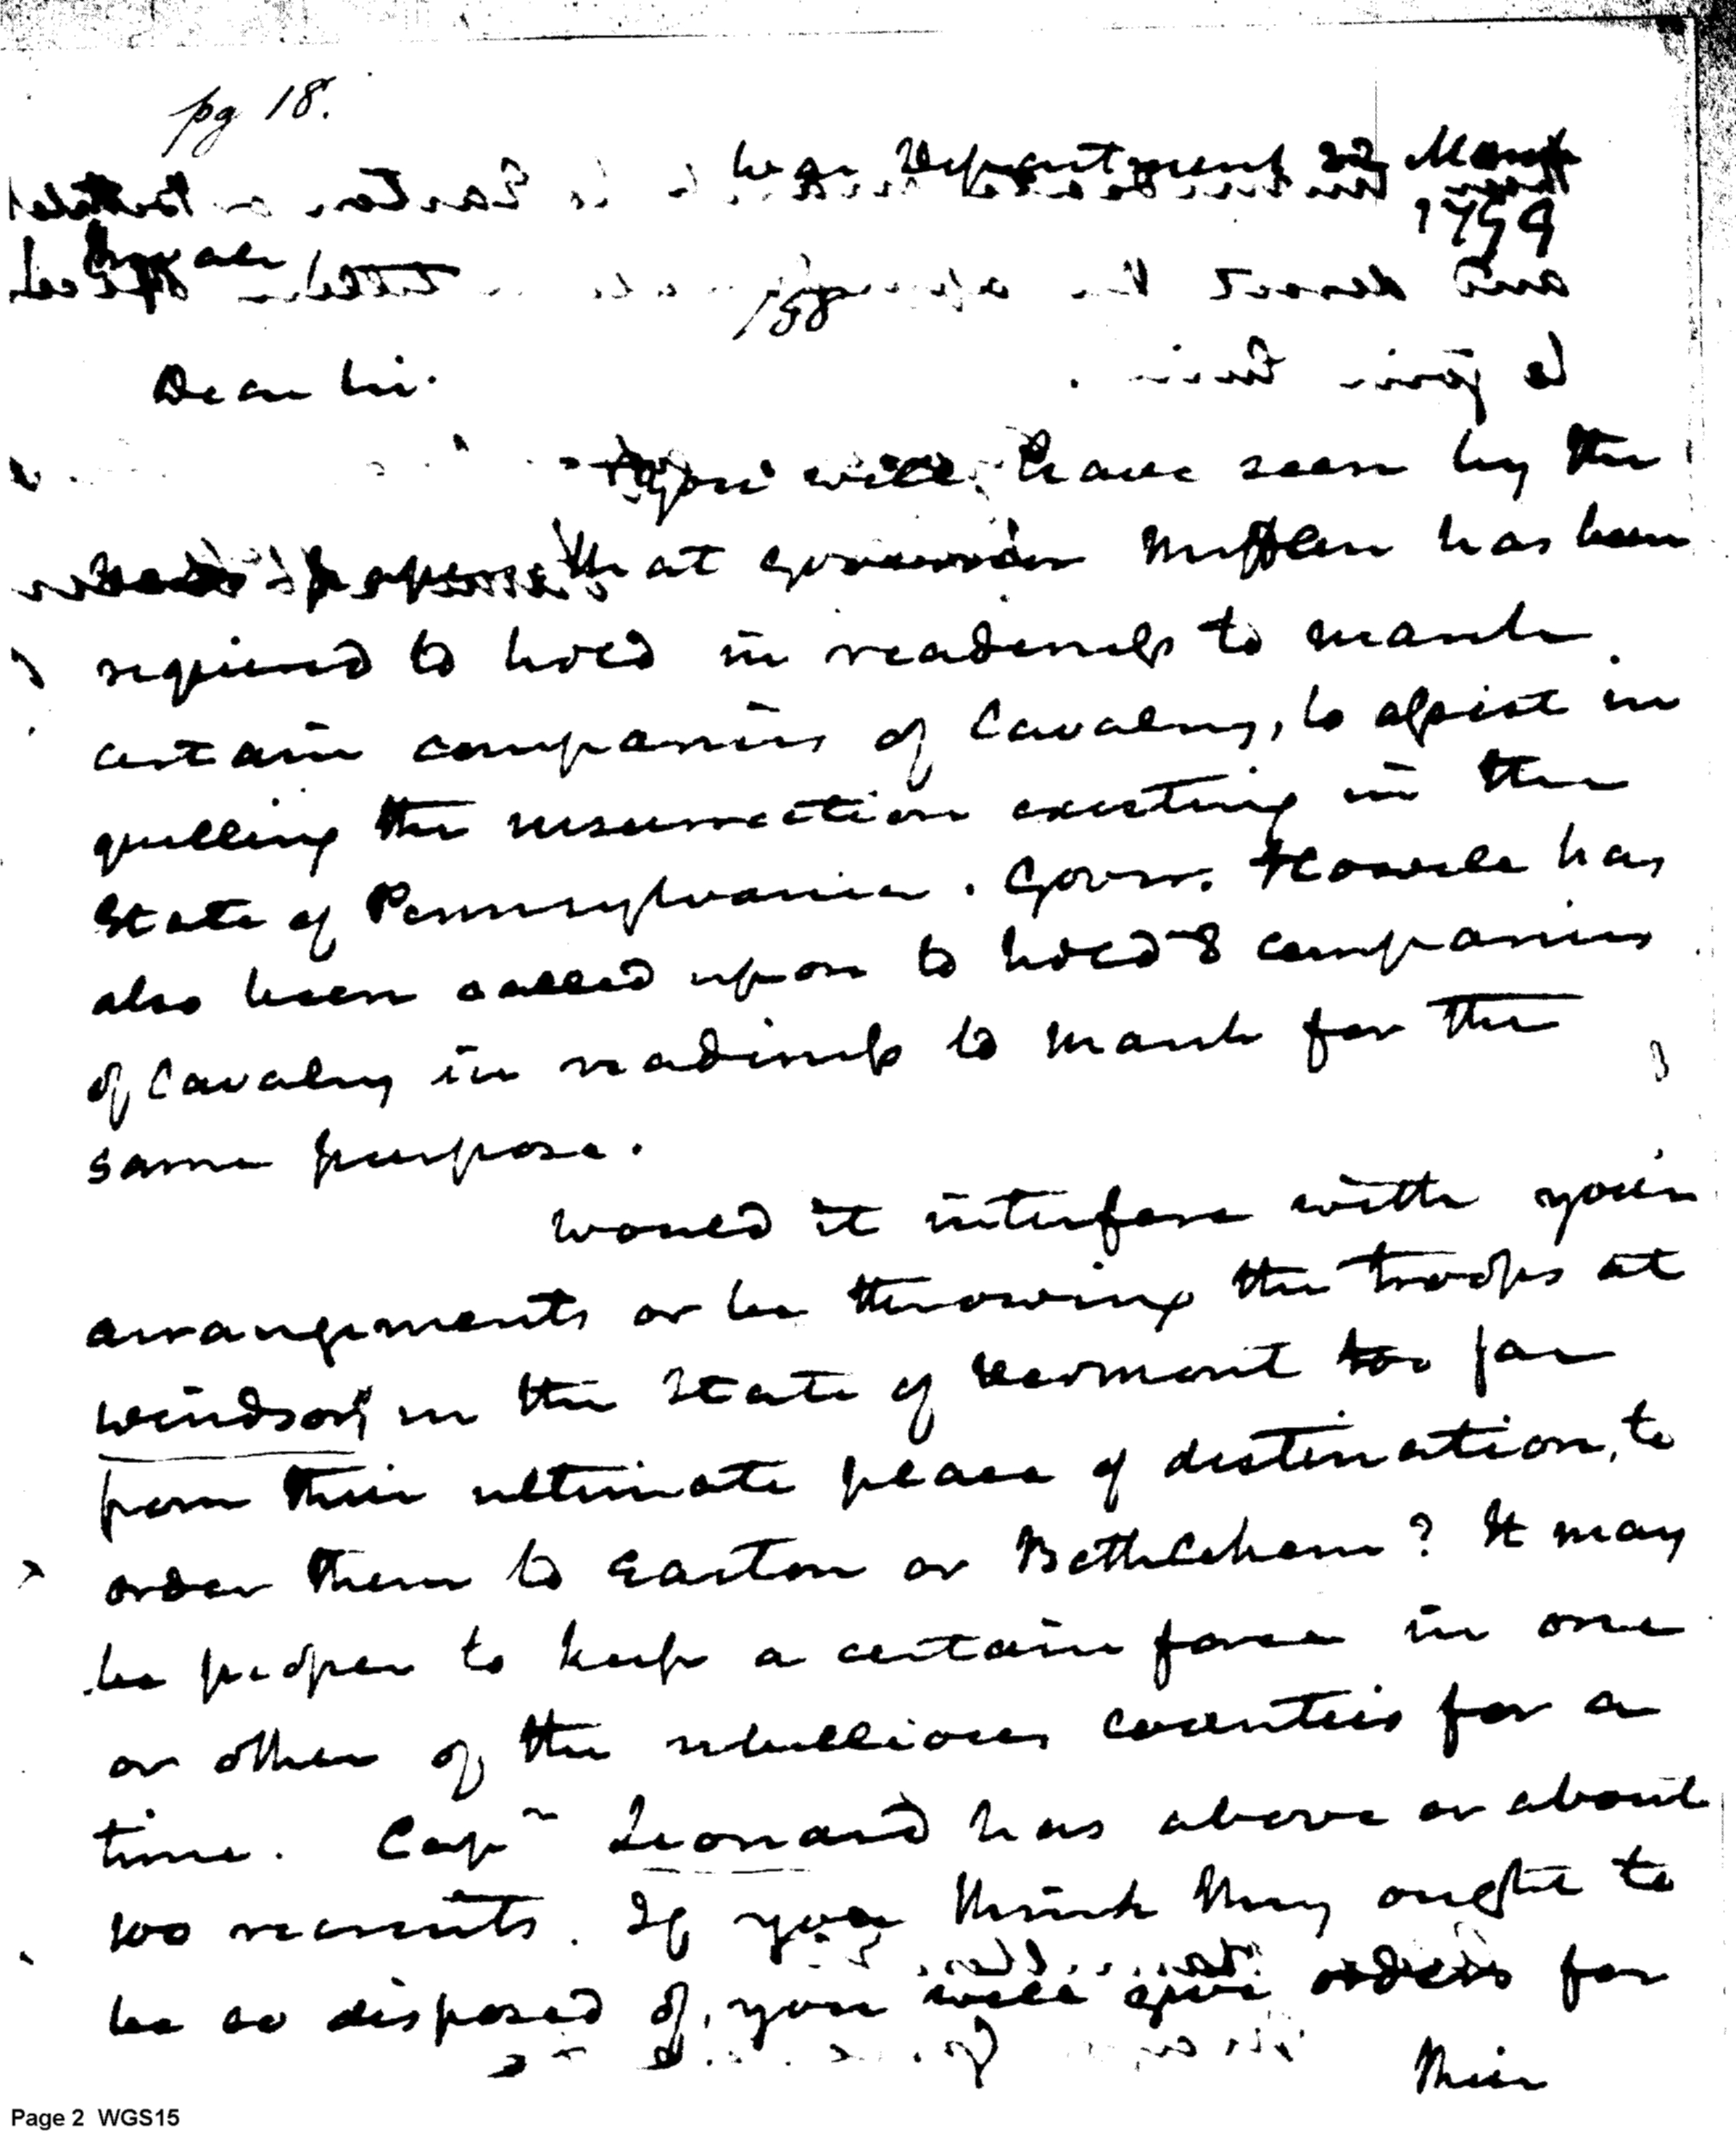 pg 18.
War Department 22 March
1799
Private
188
Dear Sir.
you will have seen by the
news papers that governor Mifflin has been
required to hold in readiness to march
certain companies of Cavalry, to assist in
quelling the insurrection existing in the
State of Pennsylvania. Govr. Howell has
also been called upon to hold 8 companies
of Cavalry in readiness to march for the
same purpose.
Would it interfere with your
arrangements or be throwing the troops at
Windsor in the State of Vermont too far
from their ultimate place of destination, to
order them to Easton or Bethlehem? It may
be proper to keep a certain force in one
or other of the rebellious counties for a
time. Capn Leonard has above or about
100 recruits. If you think they ought to
be so disposed of, you will give orders for
their
Page 2 WGS15